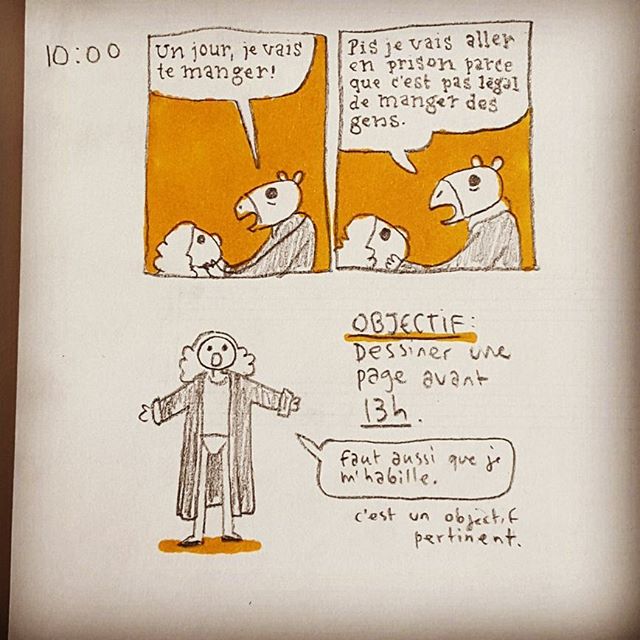 10:00
Un jour, je vais
te manger!
Pis je vais aller
en prison parce
que c'est pas légal
de manger des
gens.
OBJECTIF:
Dessiner une
page avant
13h.
faut aussi que je
m'habille.
c'est un objectif
pertinent.